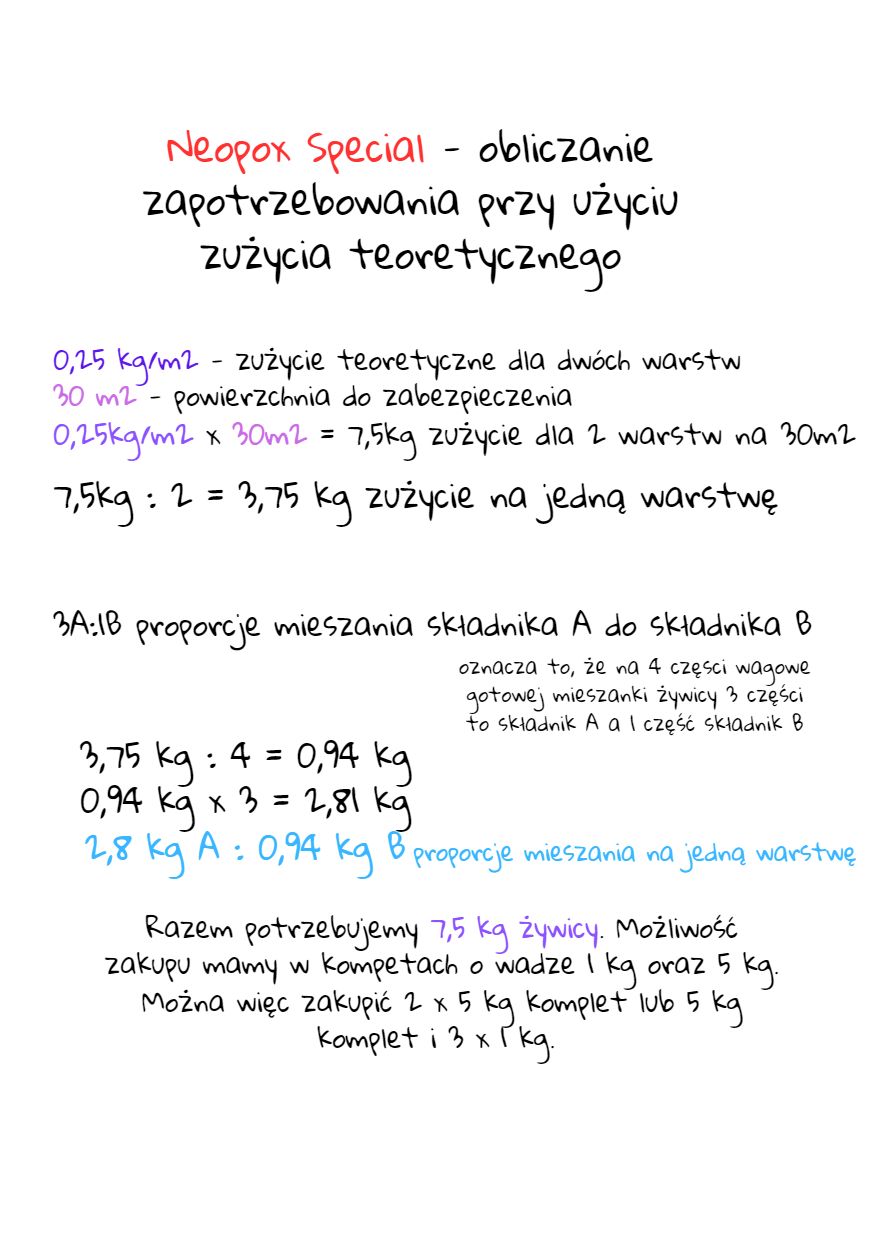 Neopox Special - obliczanie
zapotrzebowania przy użyciu
zużycia teoretycznego
0,25 kg/m2 - zużycie teoretyczne dla dwóch warstw
30 m2 - powierzchnia do zabezpieczenia
0,25kg/m2 x 30m2 = 7,5kg zużycie dla 2 warstw na 30m2
7,5kg : 2 = 3,75 kg zużycie na jedną warstwę
3A:1B proporcje mieszania składnika A do składnika B
oznacza to, że na 4 częsci wagowe
gotowej mieszanki żywicy 3 części
to składnik A a 1 część składnik B
3,75 kg : 4 = 0,94 kg
0,94 kg x 3 = 2,81 kg
2,8 kg A : 0,94 kg B proporcje mieszania na jedną warstwę
Razem potrzebujemy 7,5 kg żywicy. Możliwość
zakupu mamy w kompetach o wadze 1 kg oraz 5 kg.
Można więc zakupić 2 x 5 kg komplet lub 5 kg
komplet i 3 x 1 kg.